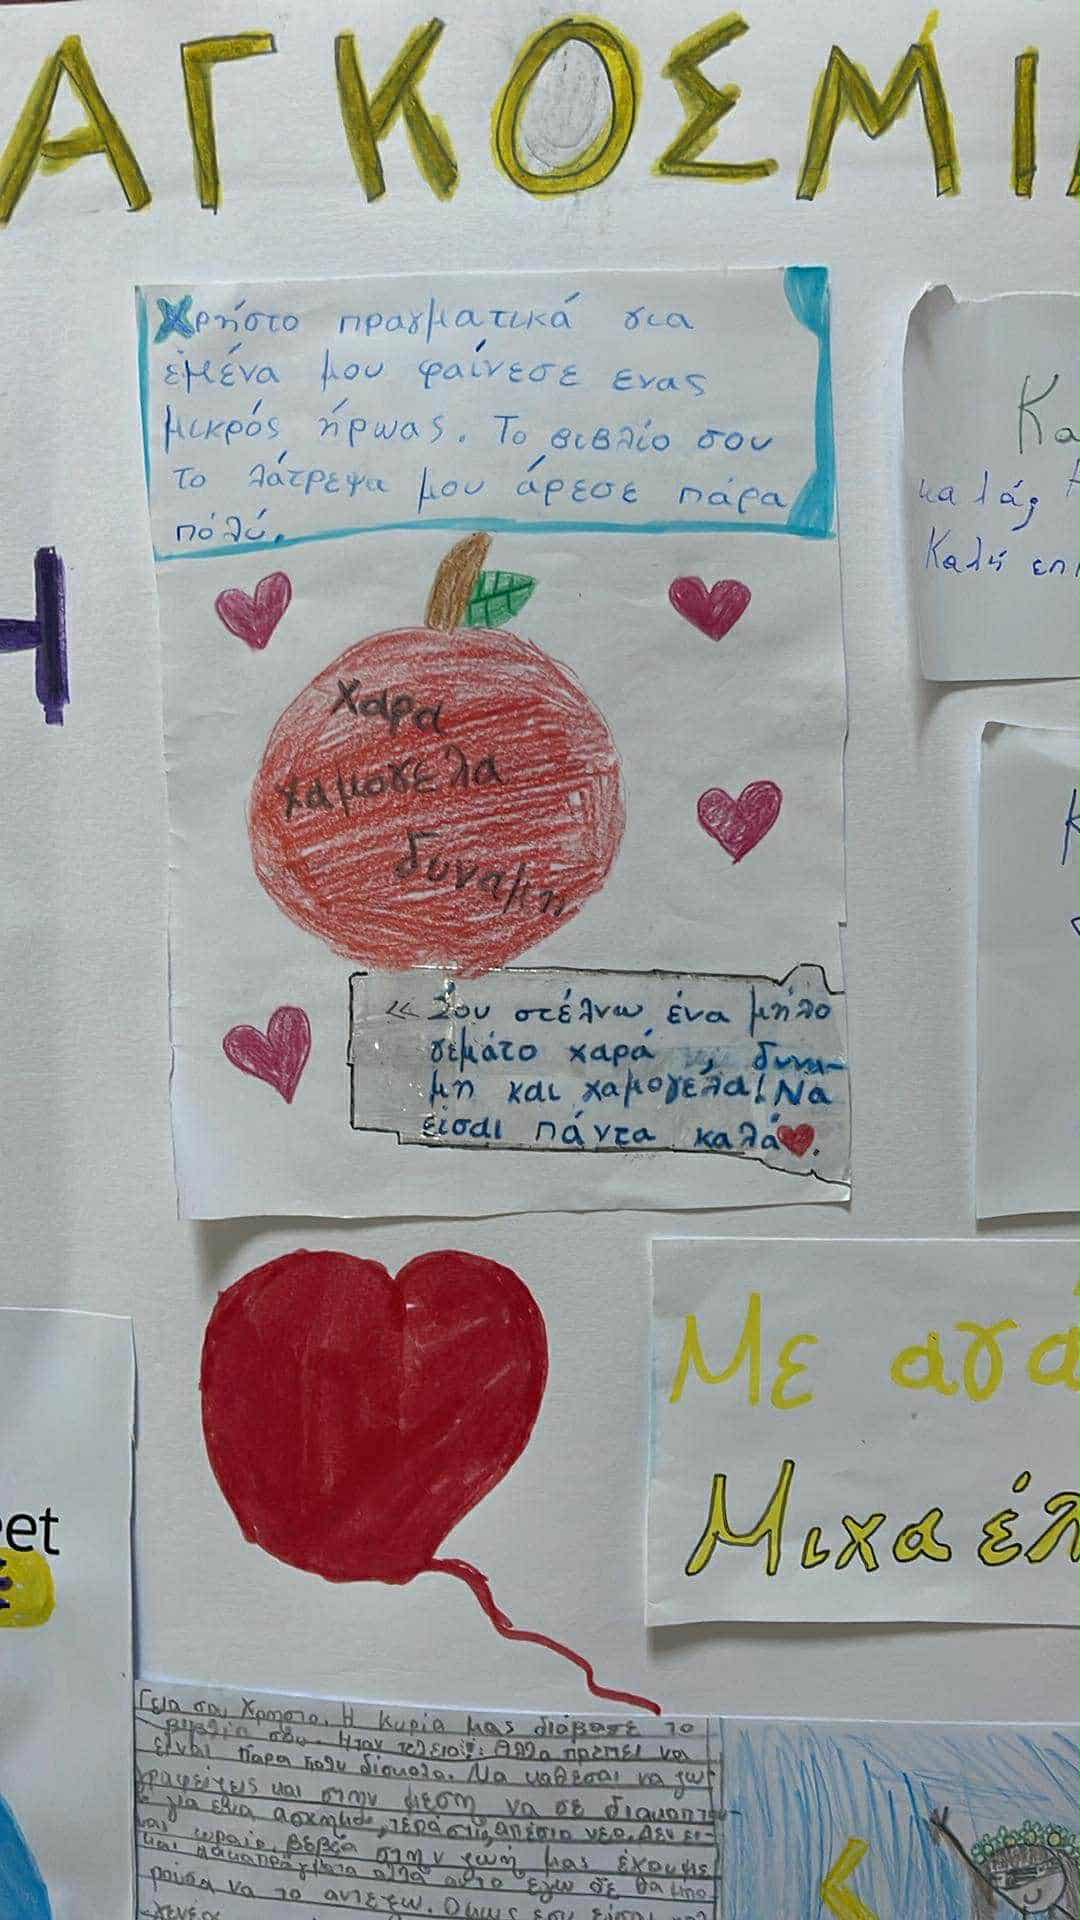 ΑΓΚΟΣΜΙ
Χρήστο πραγματικά για
έμένα μου φαίνεσε ενας
μικρός ήρωας. Το βιβλίο σου
το λάτρεψα μου άρεσε πάρα
πόλύ.
Χαρα
χαμογελα
δυναμη
Κα
καλάς
Καλή επ
Η
« Σου στέλνω ένα μήλο
γεμάτο χαρά , δυνα-
μη και χαμογελα! Να
είσαι πάντα καλά♥.
Με αγά
Μιχαέλ
eet
Γεια σου Χρηστο. Η κυρία μας διάβασε το
βιβλίο σου. Ήταν τέλειο!! Αλλα πρέπει να
είναι πάρα πολυ δίσκολο. Να κάθεσαι να ζω
γραφείζεις και στην μεση να σε διακοπτου-
ν για ενα ασχημο, τεράστιο, απέσιο νεο. Δεν ει-
ναι ωραίο, βεβεα στην ζωή μας έχουμε
και πράγματα αλλά αυτο εγω δε θα μπο
ρούσα να το αντεξω. Ομως εσυ είσαι